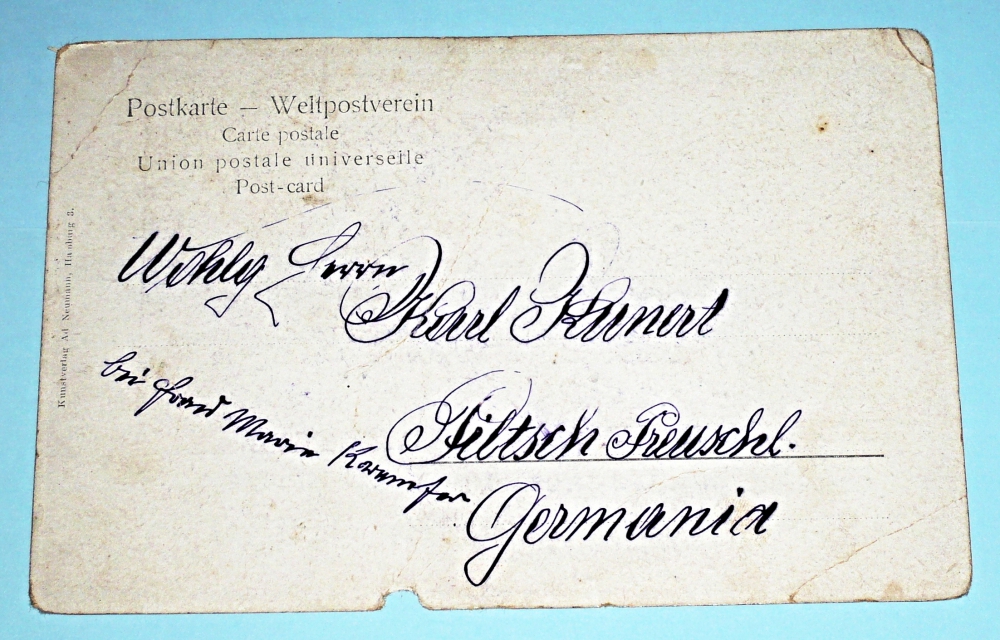 Postkarte – Weltpostverein
Carte postale
Union postale universelle
Post-card
Kunstverlag Ad Neumann, Hamburg 8.
Wohlg Herrn
Karl Kunert
bei Frau Marie
Germania